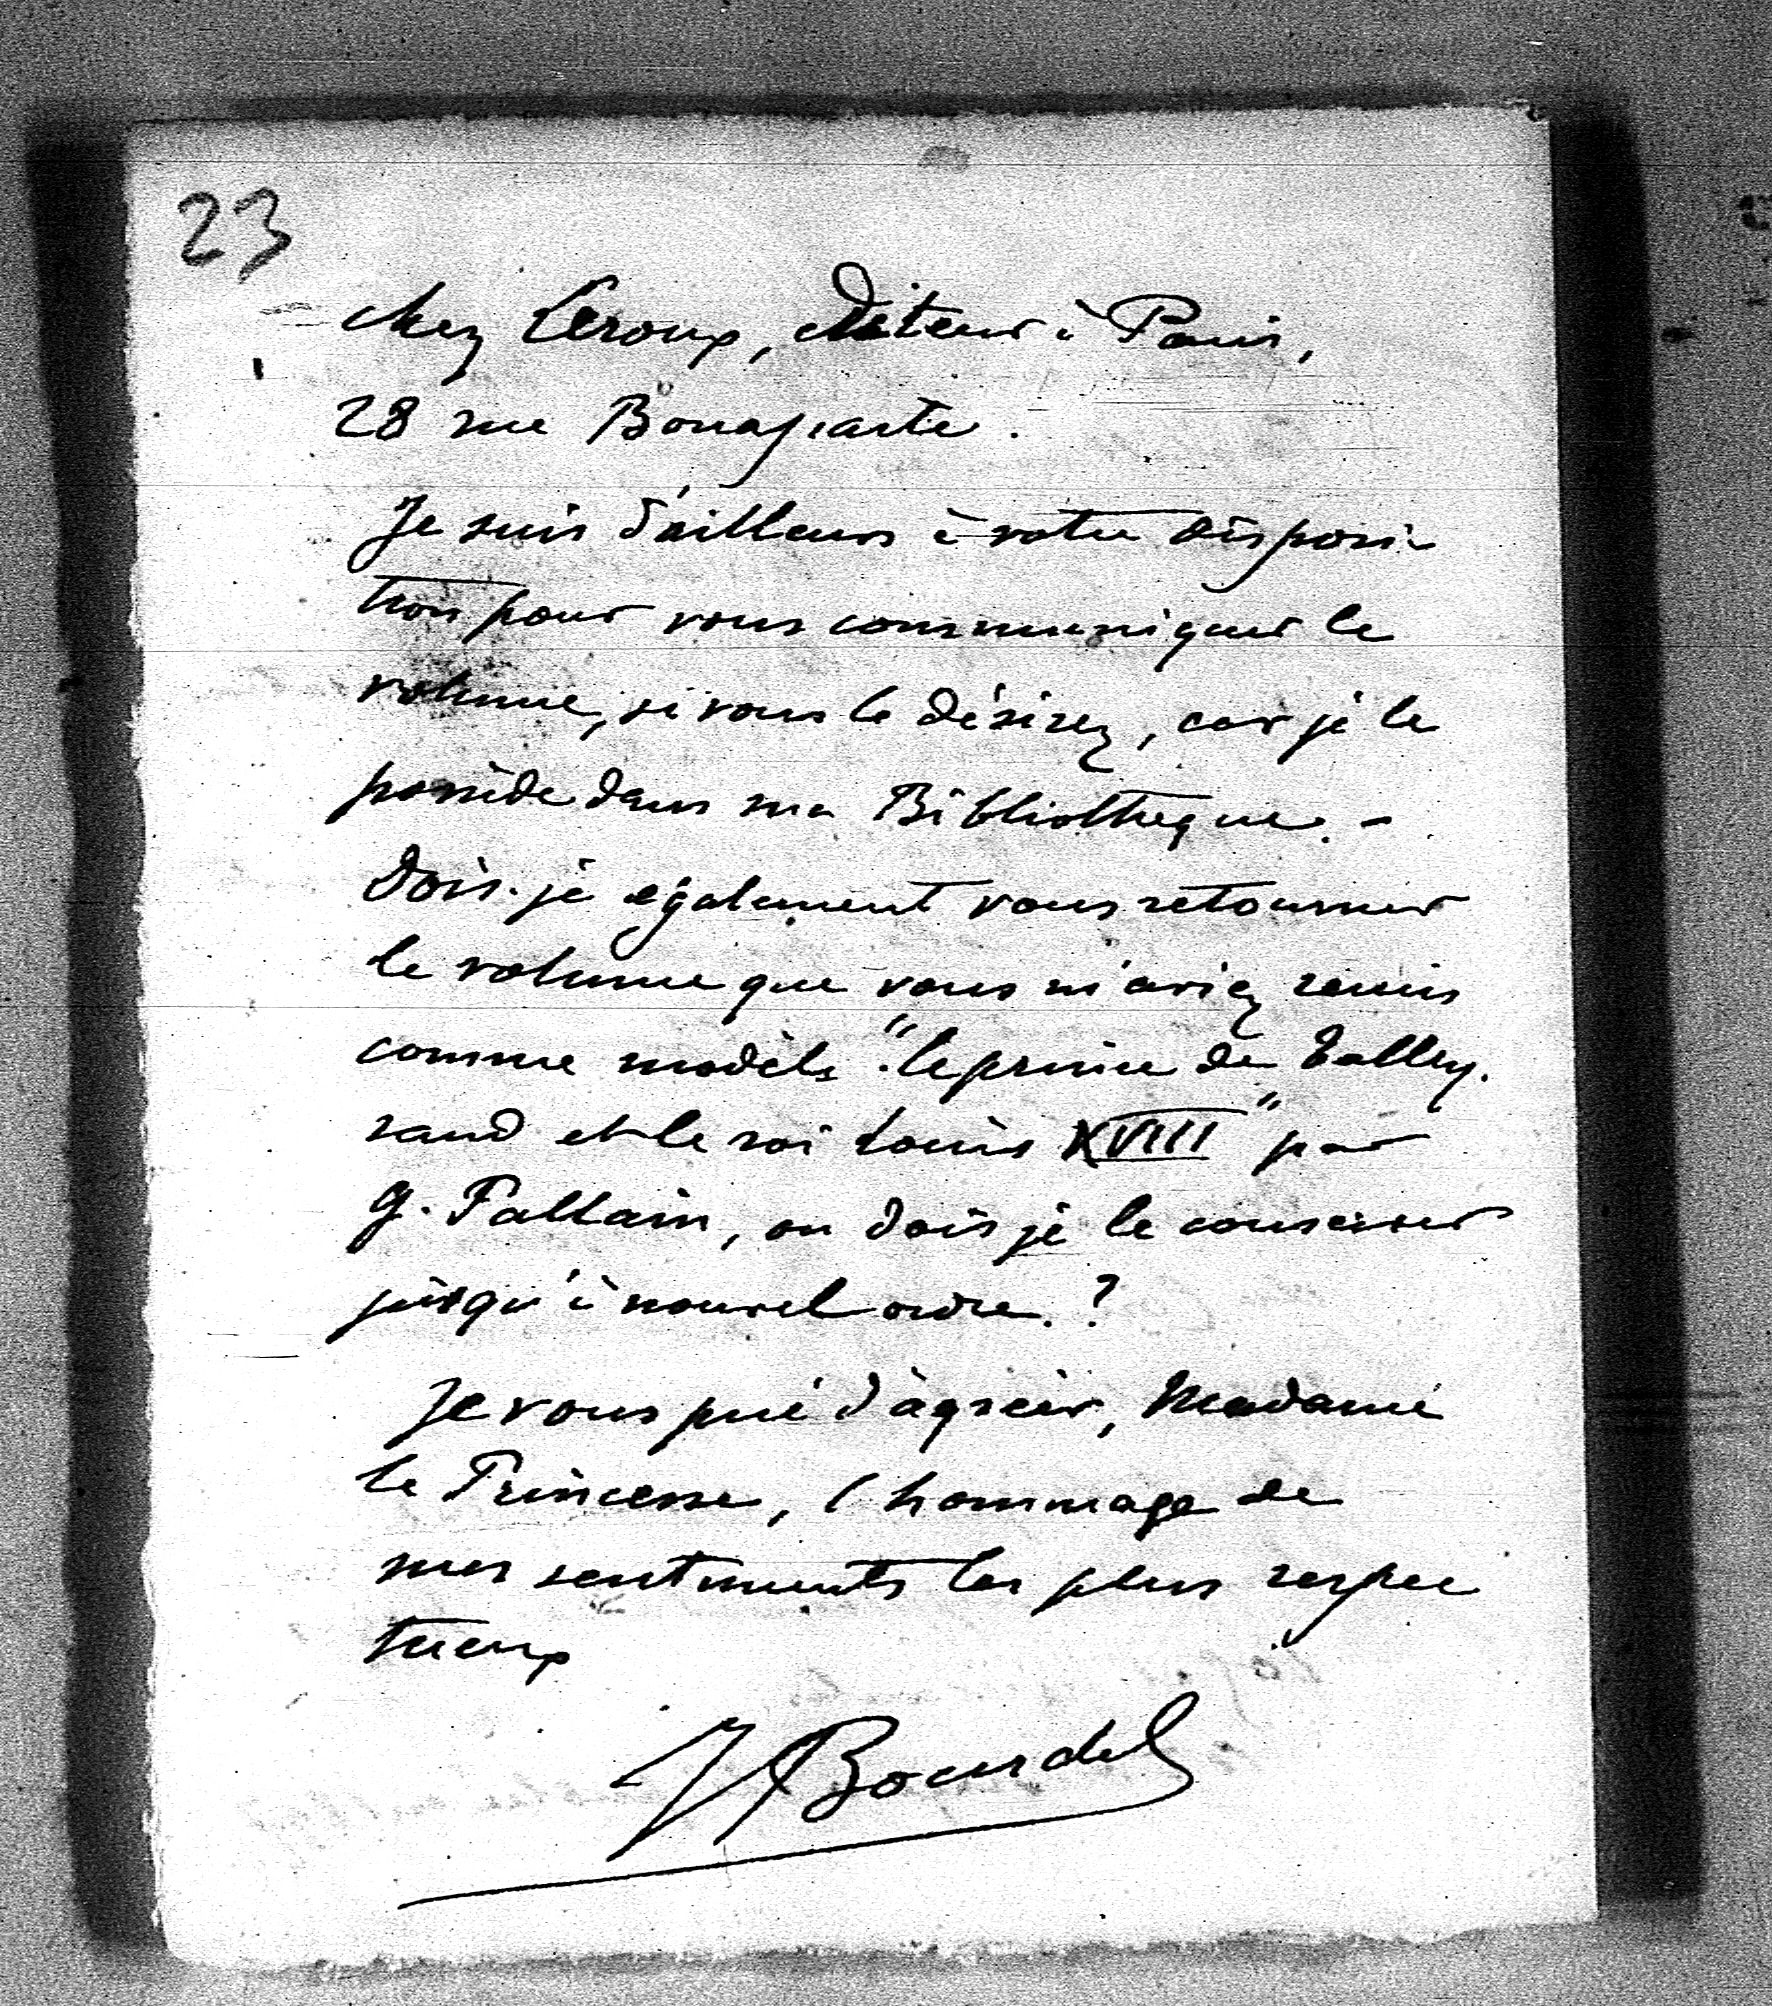 23
chez Leroux, éditeur à Paris,
28 rue Bonaparte.
Je suis d'ailleurs à votre disposi-
tion pour vous communiquer le
volume, si vous le désirez, car je le
possède dans ma Bibliothèque. -
Dois-je également vous retourner
le volume que vous m'aviez remis
comme modèle "le prince de Talley-
rand et le roi Louis XVIII" par
G. Pallain, ou dois je le conserver
jusqu'à nouvel ordre. ?
Je vous prie d'agréer, Madame
la Princesse, l'hommage de
mes sentiments les plus respec
tueux
Bourdel